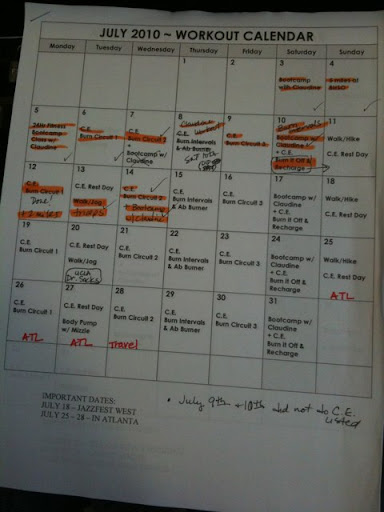 JULY 2010 ~ WORKOUT CALENDAR
Monday Tuesday Wednesday Thursday Friday Saturday Sunday
1 2 3 4
Bootcamp
with Claudine
5 6 7 8 9 10 11
24Hr Fitness
Bootcamp
Class w/
Claudine
C.E.
Burn Circuit 1
C.E.
Burn Circuit 2
+
Bootcamp w/
Claudine
Claudine
Workout
C.E.
Burn Intervals
& Ab Burner
C.E.
Burn Circuit 3
Burn
Intervals
Bootcamp w/
Claudine
+ C.E.
Burn it Off &
Recharge
Walk/Hike
C.E. Rest Day
12 13 14 15 16 17 18
C.E.
Burn Circuit 1
Done!
C.E. Rest Day
Walk/Jog
C.E.
Burn Circuit 2
+ Bootcamp
w/Claudine
C.E.
Burn Intervals
& Ab Burner
C.E.
Burn Circuit 3
Bootcamp w/
Claudine
+ C.E.
Burn it Off &
Recharge
Walk/Hike
C.E. Rest Day
19 20 21 22 23 24 25
C.E.
Burn Circuit 1
C.E. Rest Day
Walk/Jog
UCLA
Dr. Sacks
C.E.
Burn Circuit 2
C.E.
Burn Intervals
& Ab Burner
C.E.
Burn Circuit 3
Bootcamp w/
Claudine
+ C.E.
Burn it Off &
Recharge
Walk/Hike
C.E. Rest Day
ATL
26 27 28 29 30 31
C.E.
Burn Circuit 1
ATL
C.E. Rest Day
Body Pump
w/ Mizzie
ATL
C.E.
Burn Circuit 2
Travel
C.E.
Burn Intervals
& Ab Burner
C.E.
Burn Circuit 3
Bootcamp w/
Claudine
+ C.E.
Burn it Off &
Recharge
IMPORTANT DATES:
JULY 18 – JAZZFEST WEST
JULY 25 – 28 – IN ATLANTA
• July 9th + 10th did not do C.E.
listed